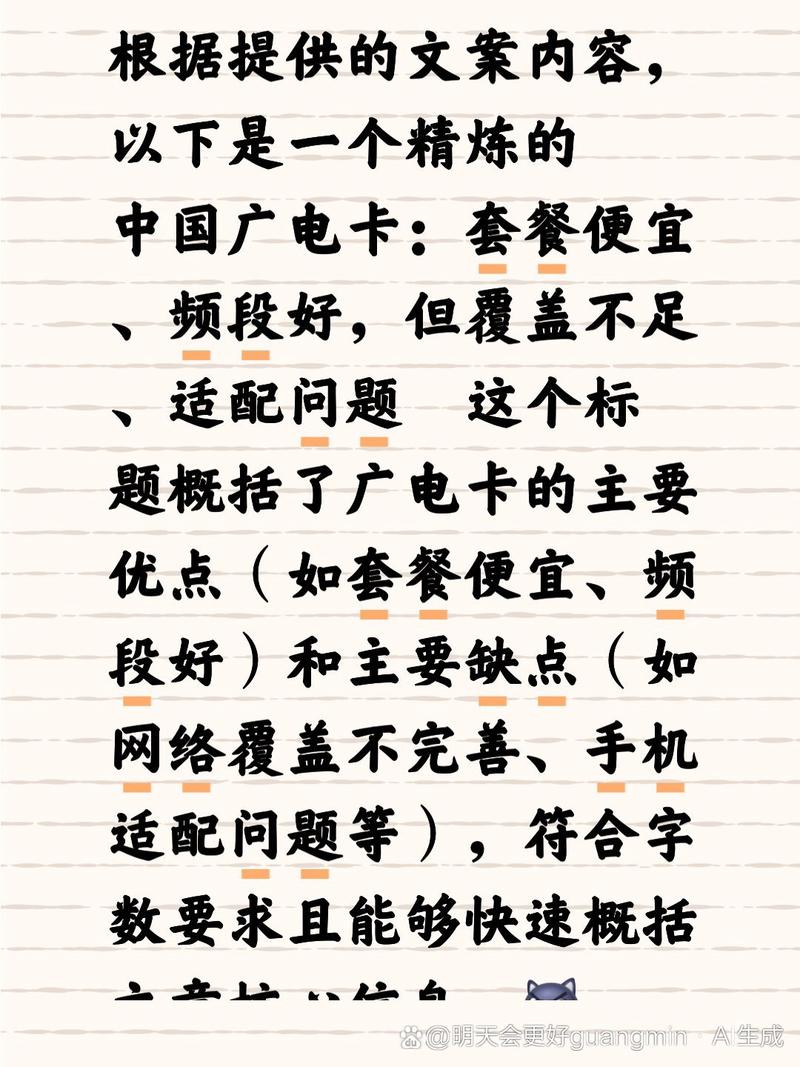 根据提供的文案内容，
以下是一个精炼的
中国广电卡：套餐便宜
、频段好，但覆盖不足
、适配问题　这个标
题概括了广电卡的主要
优点（如套餐便宜、频
段好）和主要缺点（如
网络覆盖不完善、手机
适配问题等），符合字
数要求且能够快速概括
文章核心信息
@明天会更好guangmin · AI生成